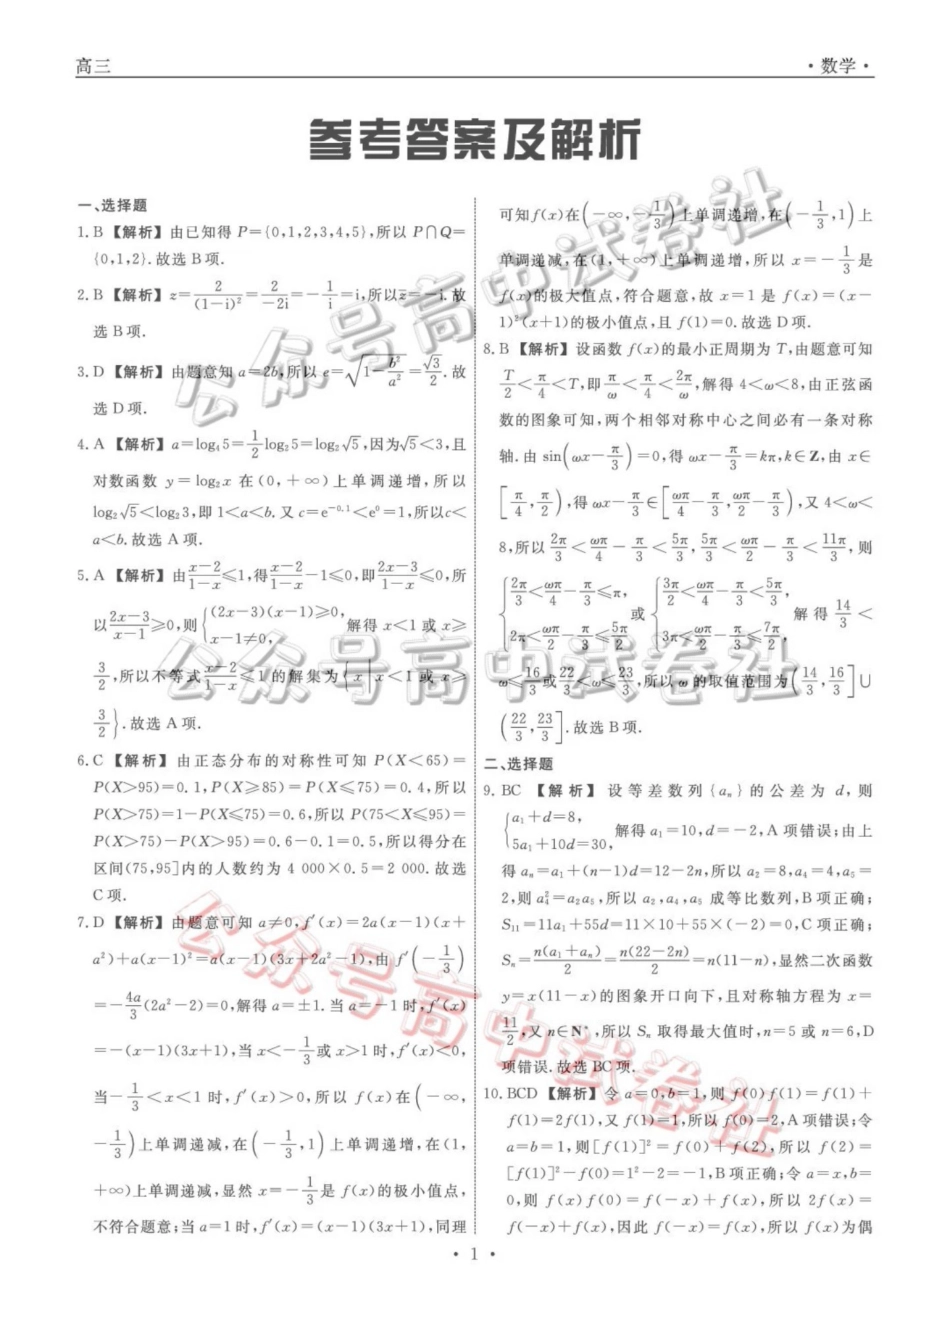 高三
·数学·
参考答案及解析
一、选择题
1. B 【解析】由已知得 P={0,1,2,3,4,5},所以 P∩Q=
{0,1,2}.故选 B 项.
2. B 【解析】z=2/(1-i)²=2/-2i=-1/i=i,所以z̄=-i.故
选 B 项.
3. D 【解析】由题意知 a=2b,所以 e=√(1-b²/a²)=√3/2.故
选 D 项.
4. A 【解析】a=log₄5=1/2log₂5=log₂√5,因为√5<3,且
对数函数 y=log₂x 在(0,+∞)上单调递增,所以
log₂√5<log₂3,即 1<a<b.又 c=e^(-0.1)<e⁰=1,所以c<
a<b.故选 A 项.
5. A 【解析】由(x-2)/(1-x)≤1,得(x-2)/(1-x)-1≤0,即(2x-3)/(1-x)≤0,所
以(2x-3)/(x-1)≥0,则{(2x-3)(x-1)≥0, x-1≠0, 解得 x<1 或 x≥
3/2,所以不等式(x-2)/(1-x)≤1 的解集为{x|x<1 或 x≥
3/2}.故选 A 项.
6. C 【解析】由正态分布的对称性可知 P(X<65)=
P(X>95)=0.1,P(X≥85)=P(X≤75)=0.4,所以
P(X>75)=1-P(X≤75)=0.6,所以 P(75<X≤95)=
P(X>75)-P(X>95)=0.6-0.1=0.5,所以得分在
区间(75,95]内的人数约为 4 000×0.5=2 000.故选
C 项.
7. D 【解析】由题意可知 a≠0,f′(x)=2a(x-1)(x+
a²)+a(x-1)²=a(x-1)(3x+2a²-1),由 f′(-1/3)
=-4a/3(2a²-2)=0,解得 a=±1.当 a=-1 时,f′(x)
=-(x-1)(3x+1),当 x<-1/3或 x>1 时,f′(x)<0,
当-1/3<x<1 时,f′(x)>0,所以 f(x)在(-∞,
-1/3)上单调递减,在(-1/3,1)上单调递增,在(1,
+∞)上单调递减,显然 x=-1/3是 f(x)的极小值点,
不符合题意;当 a=1 时,f′(x)=(x-1)(3x+1),同理
可知 f(x)在(-∞,-1/3)上单调递增,在(-1/3,1)上
单调递减,在(1,+∞)上单调递增,所以 x=-1/3是
f(x)的极大值点,符合题意,故 x=1 是 f(x)=(x-
1)²(x+1)的极小值点,且 f(1)=0.故选 D 项.
8. B 【解析】设函数 f(x)的最小正周期为 T,由题意可知
T/2<π/4<T,即π/ω<π/4<2π/ω,解得 4<ω<8,由正弦函
数的图象可知,两个相邻对称中心之间必有一条对称
轴.由 sin(ωx-π/3)=0,得 ωx-π/3=kπ,k∈Z,由 x∈
[π/4,π/2),得 ωx-π/3∈[ωπ/4-π/3,ωπ/2-π/3),又 4<ω<
8,所以2π/3<ωπ/4-π/3<5π/3,5π/3<ωπ/2-π/3<11π/3,则
{2π/3<ωπ/4-π/3≤π, 2π<ωπ/2-π/3≤5π/2 或 {3π/2<ωπ/4-π/3<5π/3, 3π<ωπ/2-π/3≤7π/2, 解得14/3<
ω≤16/3或22/3<ω≤23/3,所以 ω 的取值范围为(14/3,16/3]∪
(22/3,23/3].故选 B 项.
二、选择题
9. BC 【解析】设等差数列{aₙ}的公差为 d,则
{a₁+d=8, 5a₁+10d=30, 解得 a₁=10,d=-2,A 项错误;由上
得 aₙ=a₁+(n-1)d=12-2n,所以 a₂=8,a₄=4,a₅=
2,则 a₄²=a₂a₅,所以 a₂,a₄,a₅ 成等比数列,B 项正确;
S₁₁=11a₁+55d=11×10+55×(-2)=0,C 项正确;
Sₙ=n(a₁+aₙ)/2=n(22-2n)/2=n(11-n),显然二次函数
y=x(11-x)的图象开口向下,且对称轴方程为 x=
11/2,又 n∈N*,所以 Sₙ 取得最大值时,n=5 或 n=6,D
项错误.故选 BC 项.
10. BCD 【解析】令 a=0,b=1,则 f(0)f(1)=f(1)+
f(1)=2f(1),又 f(1)=1,所以 f(0)=2,A 项错误;令
a=b=1,则[f(1)]²=f(0)+f(2),所以 f(2)=
[f(1)]²-f(0)=1²-2=-1,B 项正确;令 a=x,b=
0,则 f(x)f(0)=f(-x)+f(x),所以 2f(x)=
f(-x)+f(x),因此 f(-x)=f(x),所以 f(x)为偶
· 1 ·
公众号高中试卷社
公众号高中试卷社
公众号高中试卷社